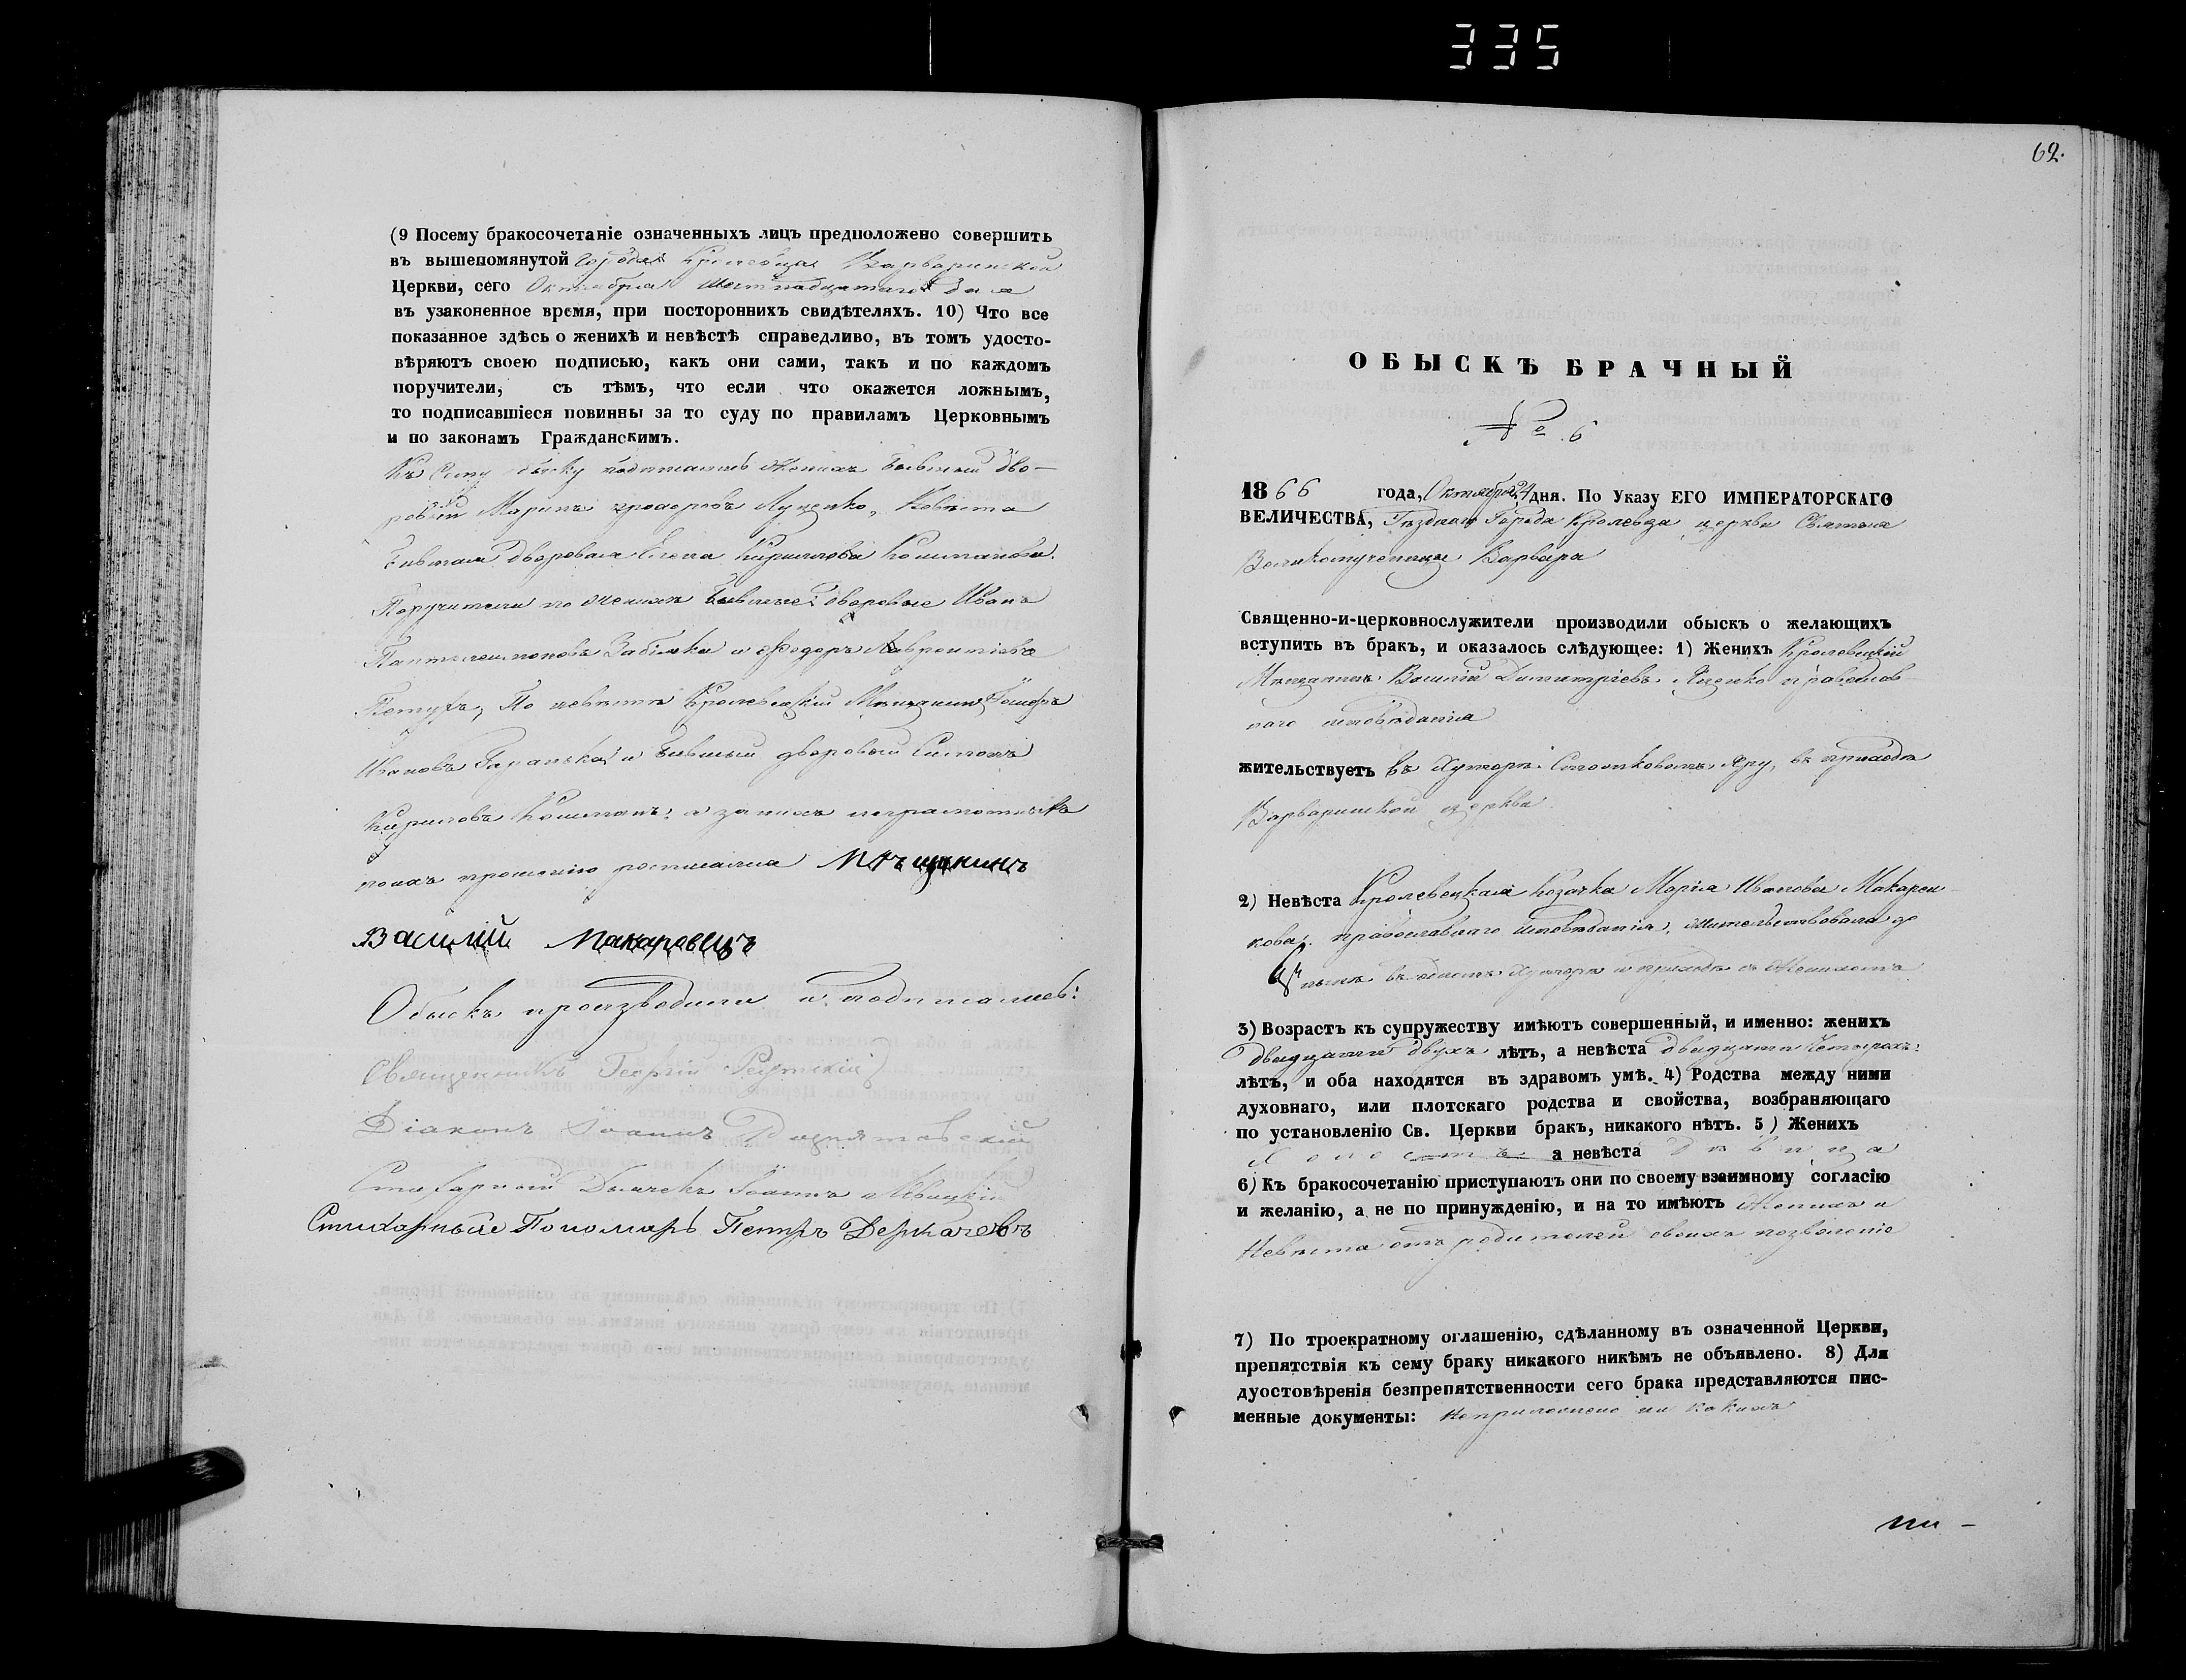 335
(9 Посему бракосочетаніе означенныхъ лицъ предположено совершить
въ вышепомянутой города Кролевца Варваринской
Церкви, сего Октября Шестнадцатаго дня
въ узаконенное время, при постороннихъ свидѣтеляхъ. 10) Что все
показанное здѣсь о женихѣ и невѣстѣ справедливо, въ томъ удосто-
вѣряютъ своею подписью, какъ они сами, такъ и по каждомъ
поручители, съ тѣмъ, что если что окажется ложнымъ,
то подписавшіеся повинны за то суду по правиламъ Церковнымъ
и по законамъ Гражданскимъ.
Къ сему обыску подписались Женихъ бывшій дво-
ровый Луценко, Невѣста
бывшая дворовая Елена Кириллова Кошманова.
Поручители по женихѣ бывшіе дворовые Иванъ
Пантелеимоновъ Забіяка и Федоръ Лаврентіевъ
Петухъ, По невѣстѣ Кролевецкій Мѣщанинъ
Ивановъ Гаранька и бывшій дворовый Симонъ
Кириловъ Кошманъ, а за нихъ неграмотныхъ
прошенію росписался Мѣщанинъ
Василій Макаровецъ
Обыскъ производили и подписались:
Священникъ Георгій
Діаконъ Іоаннъ
Стихарный Дьячекъ Іоаннъ Левицкій
Стихарный Пономарь Петръ Деркачевъ
62.
ОБЫСКЪ БРАЧНЫЙ
№ 6
1866 года, Октября 24 дня. По Указу ЕГО ИМПЕРАТОРСКАГО
ВЕЛИЧЕСТВА, Уѣзднаго Города Кролевца, церкви Святыя
Великомученицы Варвары
Священно-и-церковнослужители производили обыскъ о желающихъ
вступить въ бракъ, и оказалось слѣдующее: 1) Женихъ Кролевецкій
Мѣщанинъ Василій Димитріевъ Яценко православ-
наго исповѣданія
жительствуетъ въ Хуторѣ Яру, въ приходѣ
Варваринской церкви
2) Невѣста Кролевецкая Козачка Марія Иванова Макарен-
кова, православнаго исповѣданія, жительствовала до
нынѣ въ Хуторѣ и приходѣ съ Женихомъ
3) Возрастъ къ супружеству имѣютъ совершенный, и именно: женихъ
двадцати двухъ лѣтъ, а невѣста двадцати четырехъ
лѣтъ, и оба находятся въ здравомъ умѣ. 4) Родства между ними
духовнаго, или плотскаго родства и свойства, возбраняющаго
по установленію Св. Церкви бракъ, никакого нѣтъ. 5) Женихъ
Холостъ а невѣста Дѣвица
6) Къ бракосочетанію приступаютъ они по своему взаимному согласію
и желанію, а не по принужденію, и на то имѣютъ Женихъ и
Невѣста отъ родителей своихъ позволеніе
7) По троекратному оглашенію, сдѣланному въ означенной Церкви,
препятствія къ сему браку никакого никѣмъ не объявлено. 8) Для
дуостовѣренія безпрепятственности сего брака представляются пис-
менные документы: Неприложено ни какихъ